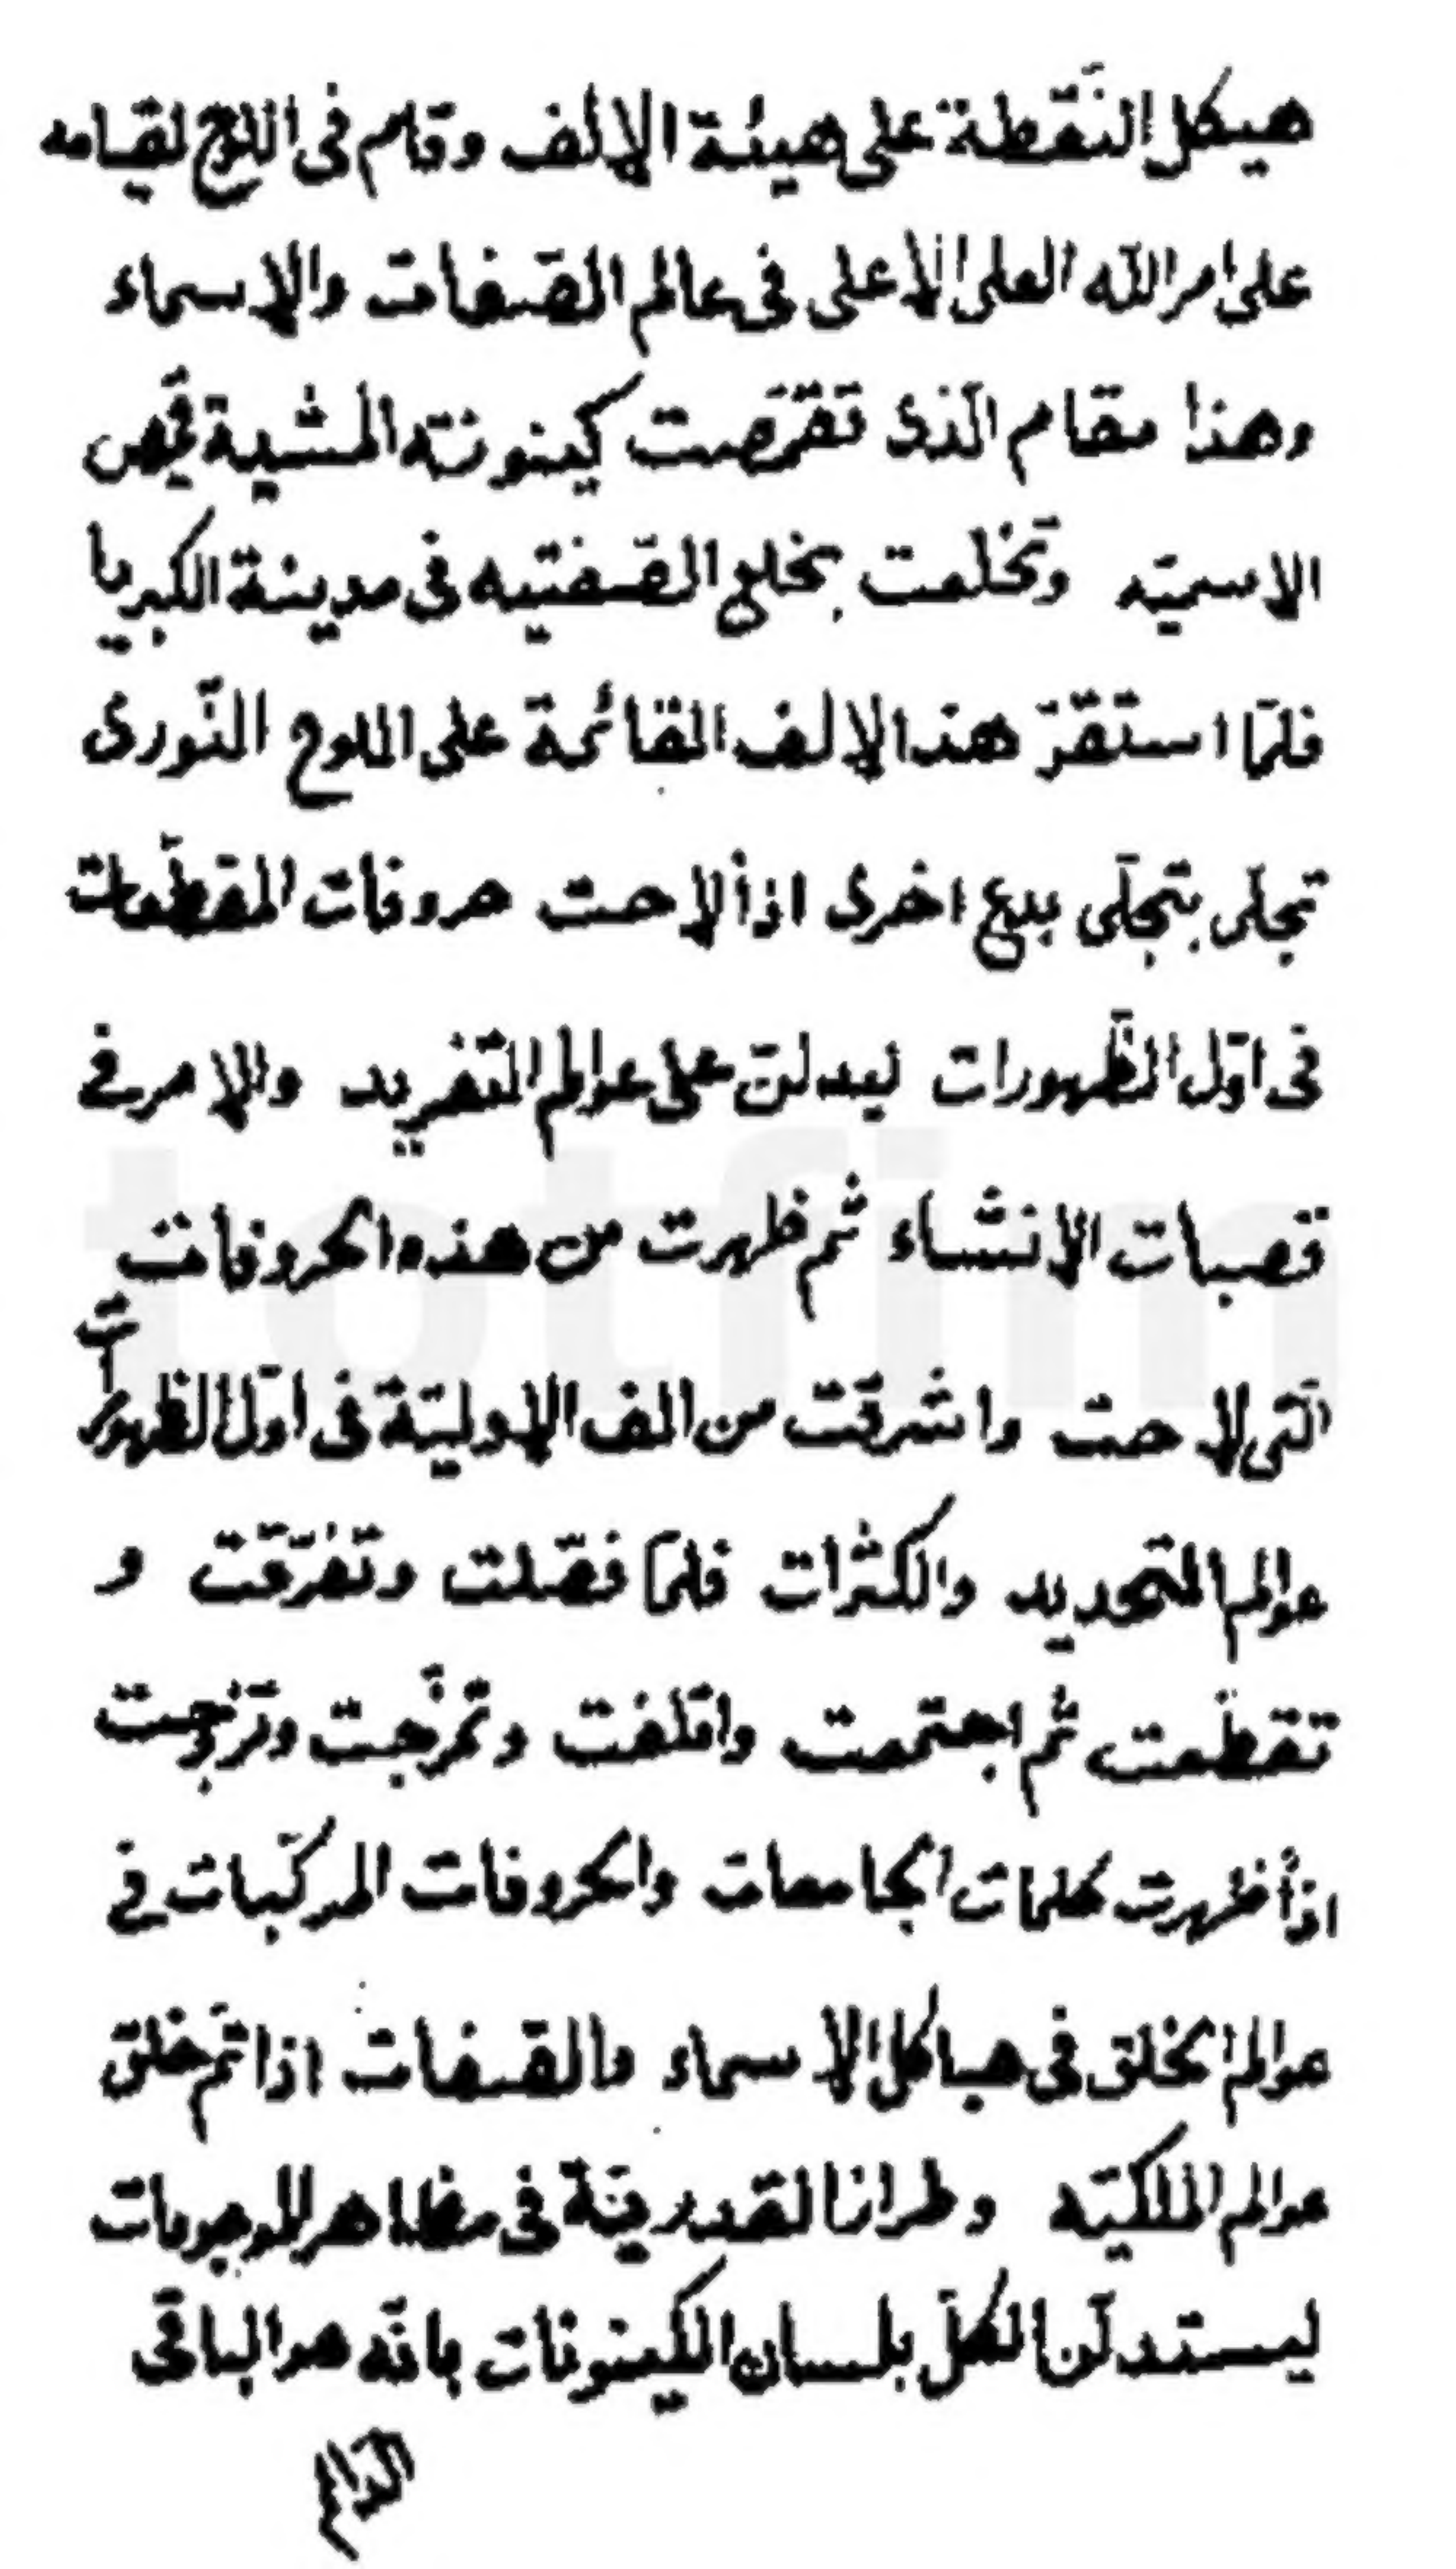 هيكل النّقطة على هيئة الالف وقام فى اللوح لقيامه
على امر الله العلى الاعلى فى عالم الصّفات والاسماء
وهذا مقام الّذى تقمّصت كينونته المشية قميص
الاسميّه وتخلعت بخلع الصّفتيه فى مدينة الكبريا
فلمّا استقرّ هذا الالف القائمة على اللوح النّورى
تجلى بتجلّى بدع اخرى اذاً لاحت حروفات المقطّعات
فى اوّل الظّهورات ليدلنّ على عوالم التّفريد والامر فى
قصبات الانشاء ثم ظهرت من هذه الحروفات
الّتى لاحت واشرقت من الف الاوليّة فى اوّل الظهورات
عوالم التّحديد والكثرات فلمّا فصّلت وتفرّقت و
تقطّعت ثم اجتمعت وائتلفت وتمزّجت وتزوّجت
اذاً ظهرت كلمات الجامعات والحروفات المركّبات فى
عوالم الخلق فى هياكل الاسماء والصّفات اذا تمّ خلق
عوالم الملكيّه وطرازا فى مظاهر الموجودات
ليستدلّن الكلّ بلسان الكينونات بانّه هو الباقى
الدّائم
totfim